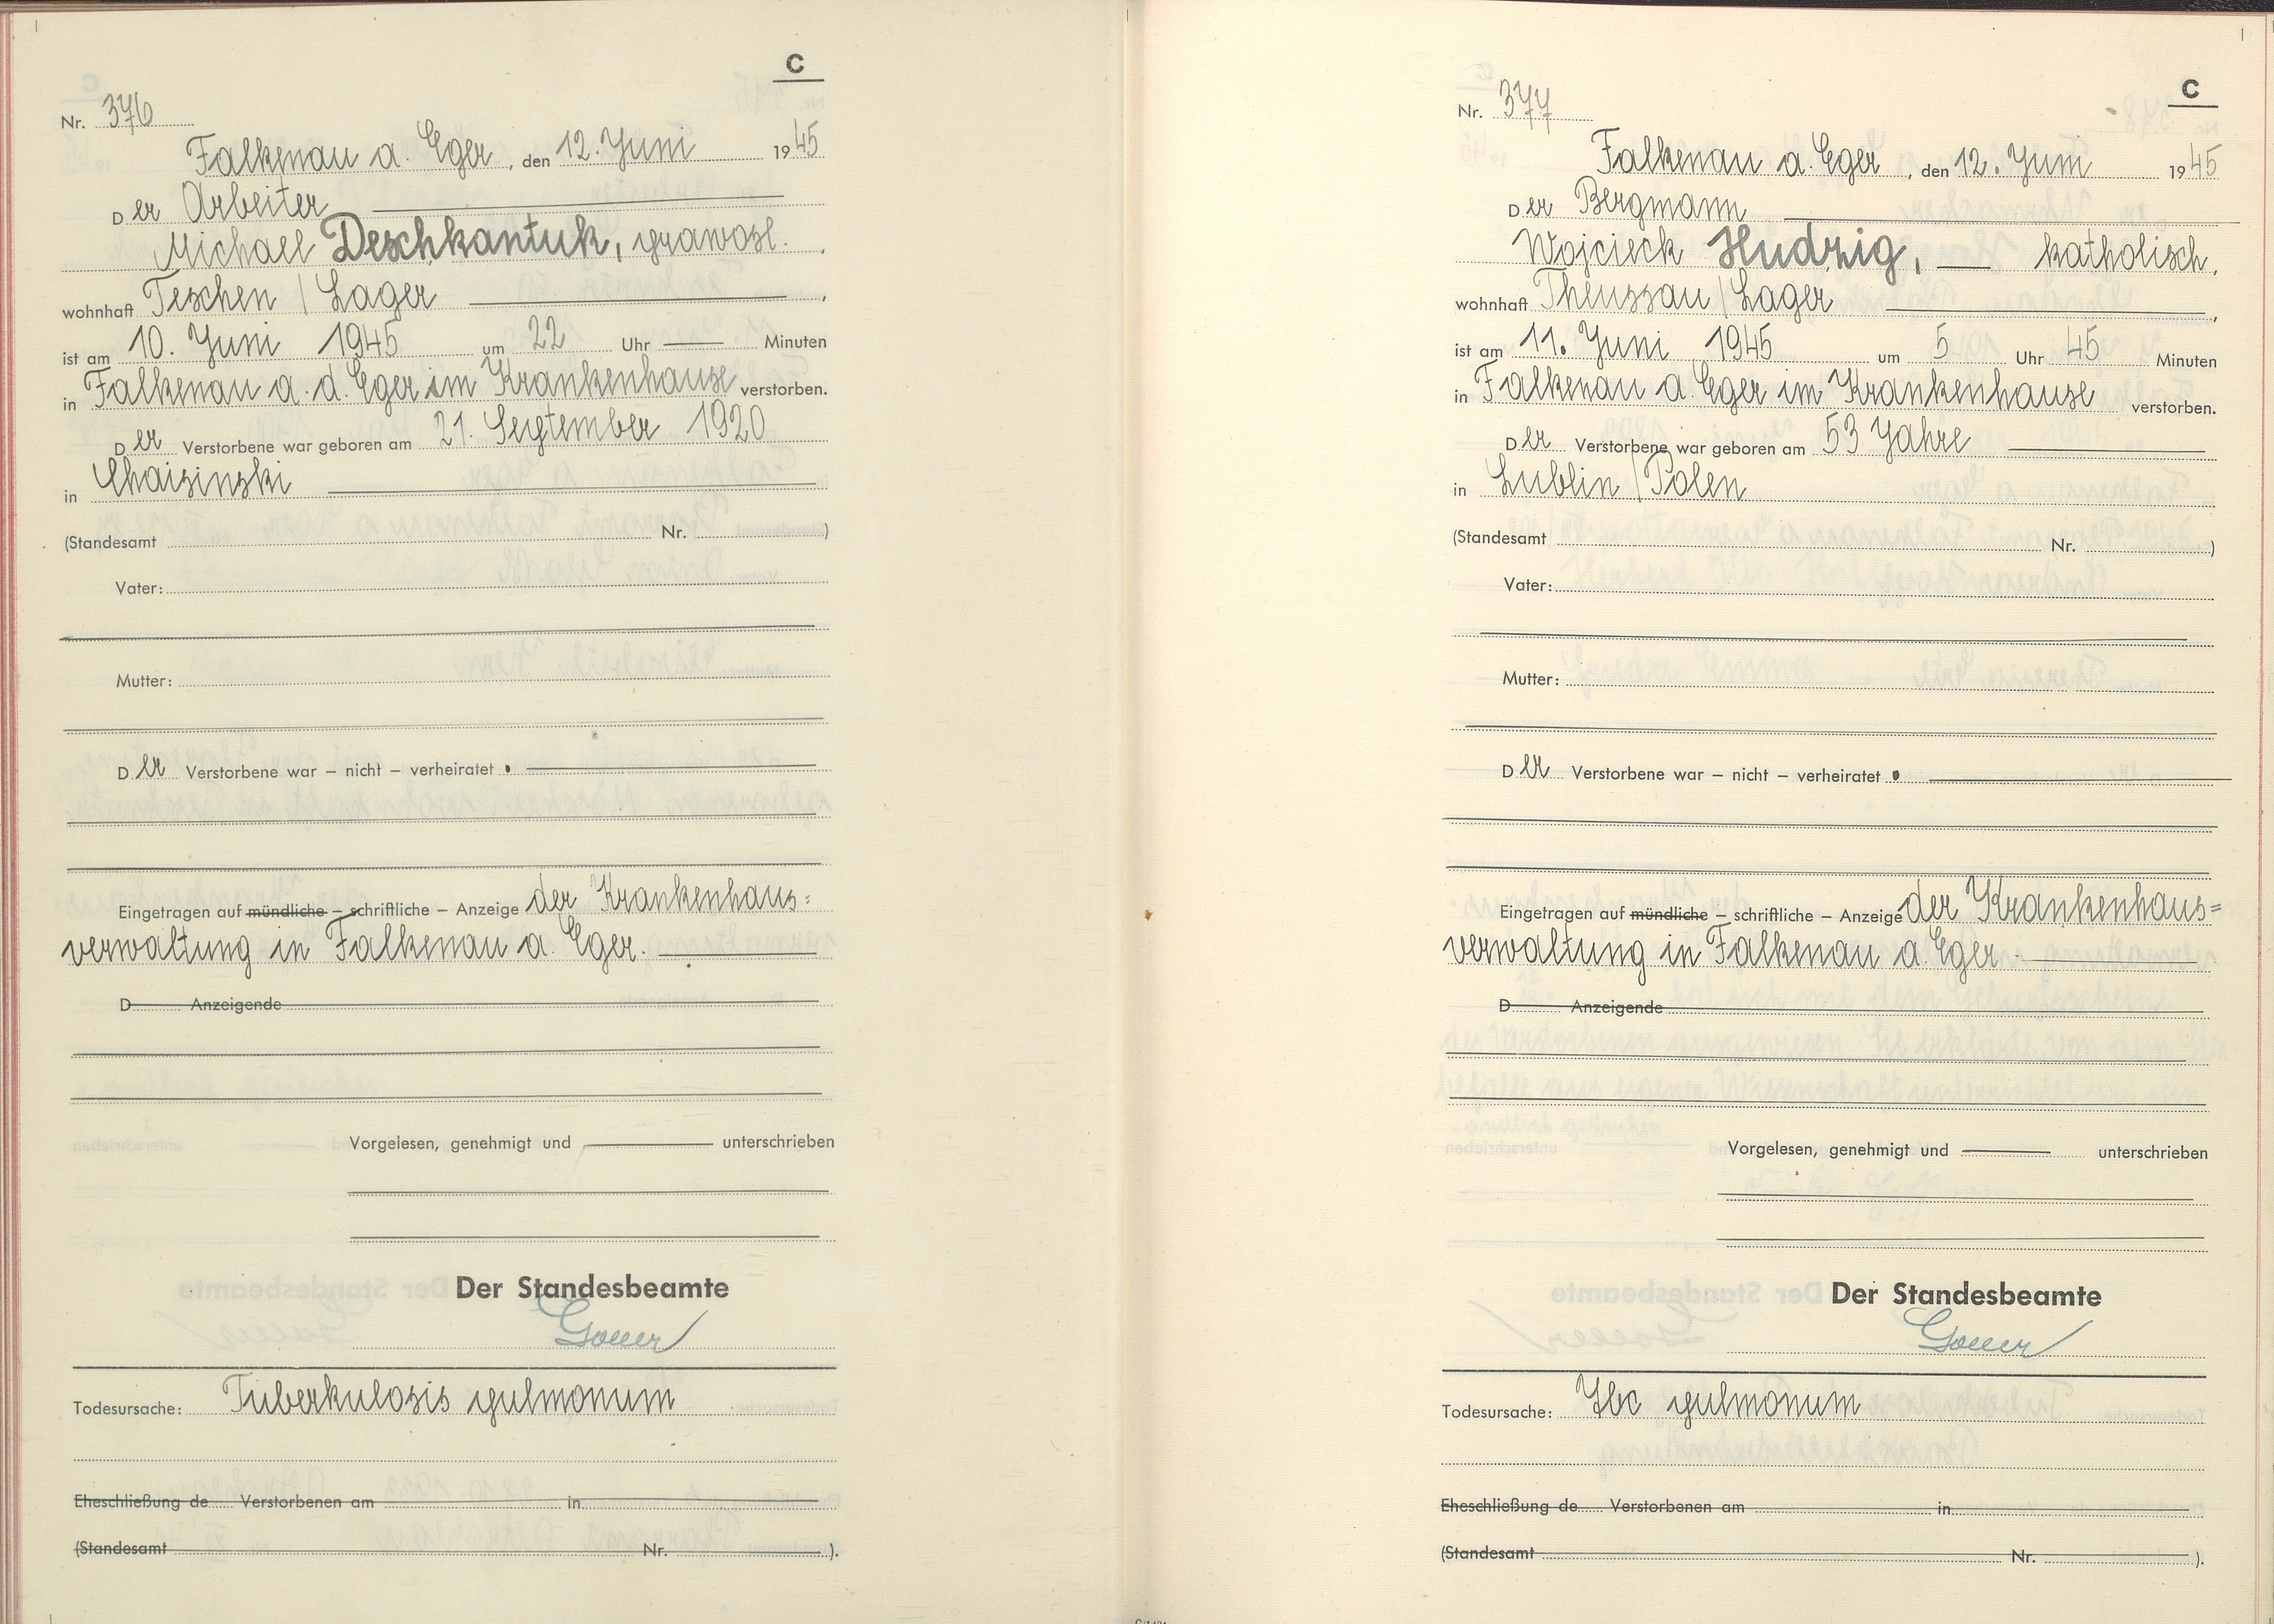 C
Nr. 376
Falkenau a. Eger, den 12. Juni 1945
Der Arbeiter
Michael Deschkantuk, prawosl.
wohnhaft Teschen / Lager
ist am 10. Juni 1945 um 22 Uhr — Minuten
in Falkenau a. d. Eger im Krankenhause verstorben.
Der Verstorbene war geboren am 21. September 1920
in Chaisinski
(Standesamt Nr. )
Vater:
Mutter:
Der Verstorbene war – nicht – verheiratet.
Eingetragen auf mündliche – schriftliche – Anzeige der Krankenhaus=
verwaltung in Falkenau a. Eger.
D Anzeigende
Vorgelesen, genehmigt und — unterschrieben
Der Standesbeamte
Todesursache: Tuberkulosis pulmonum
Eheschließung de Verstorbenen am in
(Standesamt Nr. ).
C
Nr. 377
Falkenau a. Eger, den 12. Juni 1945
Der Bergmann
Wojcieck Hudzig, — katholisch.
wohnhaft Theussau / Lager
ist am 11. Juni 1945 um 5 Uhr 45 Minuten
in Falkenau a. Eger im Krankenhause verstorben.
Der Verstorbene war geboren am 53 Jahre
in Lublin / Polen
(Standesamt Nr. )
Vater:
Mutter:
Der Verstorbene war – nicht – verheiratet.
Eingetragen auf mündliche – schriftliche – Anzeige der Krankenhaus=
verwaltung in Falkenau a. Eger.
D Anzeigende
Vorgelesen, genehmigt und — unterschrieben
Der Standesbeamte
Todesursache: Tbc pulmonum
Eheschließung de Verstorbenen am in
(Standesamt Nr. ).